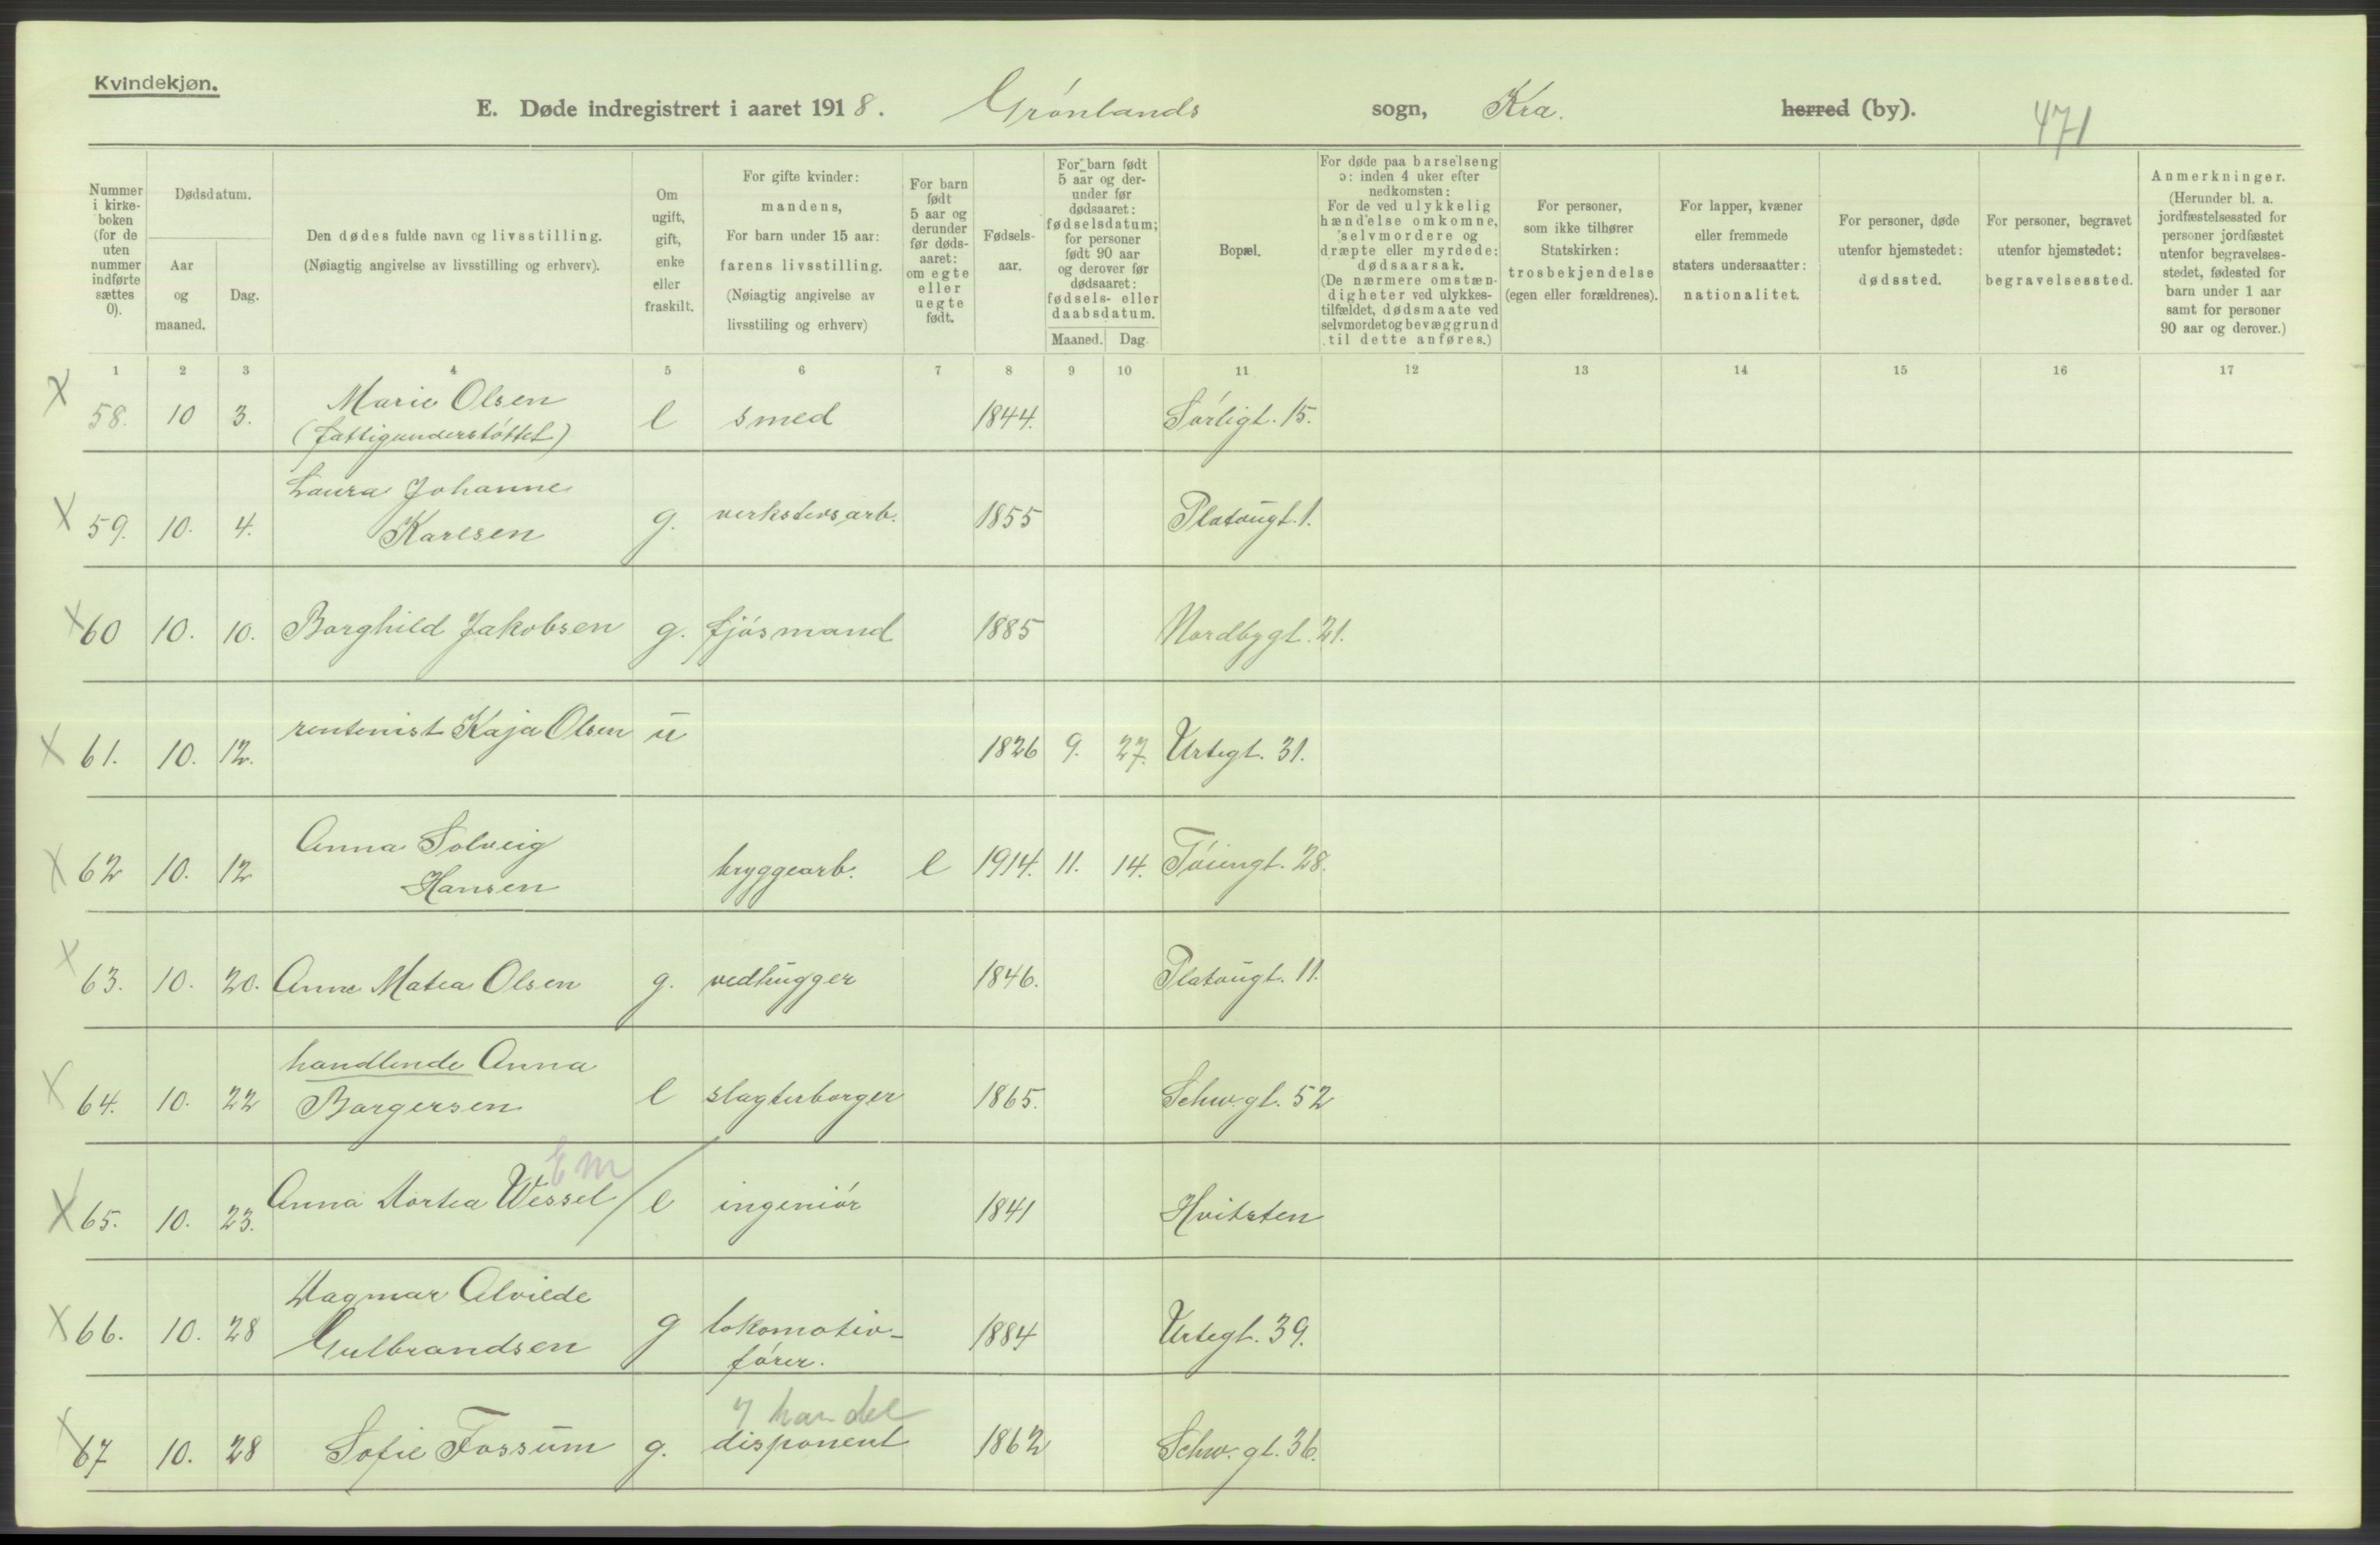 Kvindekjøn.
E. Døde indregistrert i aaret 1918. Grønlands sogn, Kra. herred (by). 471
Nummer i kirkeboken (for de uten nummer indførte sættes 0).
Dødsdatum.
Aar og maaned.
Dag.
Den dødes fulde navn og livsstilling.
(Nøiagtig angivelse av livsstilling og erhverv).
Om ugift, gift, enke eller fraskilt.
For gifte kvinder: mandens,
For barn under 15 aar: farens livsstilling.
(Nøiagtig angivelse av livsstiling og erhverv)
For barn født 5 aar og derunder før dødsaaret: om egte eller uegte født.
Fødselsaar.
For barn født 5 aar og derunder før dødsaaret: fødselsdatum; for personer født 90 aar og derover før dødsaaret: fødsels- eller daabsdatum.
Maaned. Dag.
Bopæl.
For døde paa barselseng ɔ: inden 4 uker efter nedkomsten:
For de ved ulykkelig hændelse omkomne, selvmordere og dræpte eller myrdede: dødsaarsak.
(De nærmere omstændigheter ved ulykkestilfældet, dødsmaate ved selvmordet og bevæggrund til dette anføres.)
For personer, som ikke tilhører Statskirken: trosbekjendelse (egen eller forældrenes).
For lapper, kvæner eller fremmede staters undersaatter: nationalitet.
For personer, døde utenfor hjemstedet: dødssted.
For personer, begravet utenfor hjemstedet: begravelsessted.
Anmerkninger.
(Herunder bl. a. jordfæstelsessted for personer jordfæstet utenfor begravelsesstedet, fødested for barn under 1 aar samt for personer 90 aar og derover.)
1 2 3 4 5 6 7 8 9 10 11 12 13 14 15 16 17
X 58. 10 3. Marie Olsen (fattigunderstøttet) e smed 1844. Sørligt. 15.
X 59. 10. 4. Laura Johanne Karlsen g. verkstedsarb. 1855 Platougt. 1.
X 60 10. 10. Borghild Jakobsen g. fjøsmand 1885 Nordbygt. 21.
X 61. 10. 12. rentenist Kaja Olsen u 1826 9. 27. Urtegt. 31.
X 62 10. 12 Anna Solveig Hansen bryggearb. e 1914. 11. 14. Tøiengt. 28.
X 63. 10. 20. Anne Matea Olsen g. vedhugger 1846. Platougt. 11.
X 64. 10. 22 handlende Anna Borgersen e slagterborger 1865. Schw.gt. 52
X 65. 10. 23. Anna Dortea Wessel Em / e ingeniør 1841 Hvitsten
X 66. 10. 28 Dagmar Alvilde Gulbrandsen g lokomotivfører. 1884 Urtegt. 39.
X 67 10. 28 Sofie Fossum g. handel disponent 1862 Schw.gt. 36.